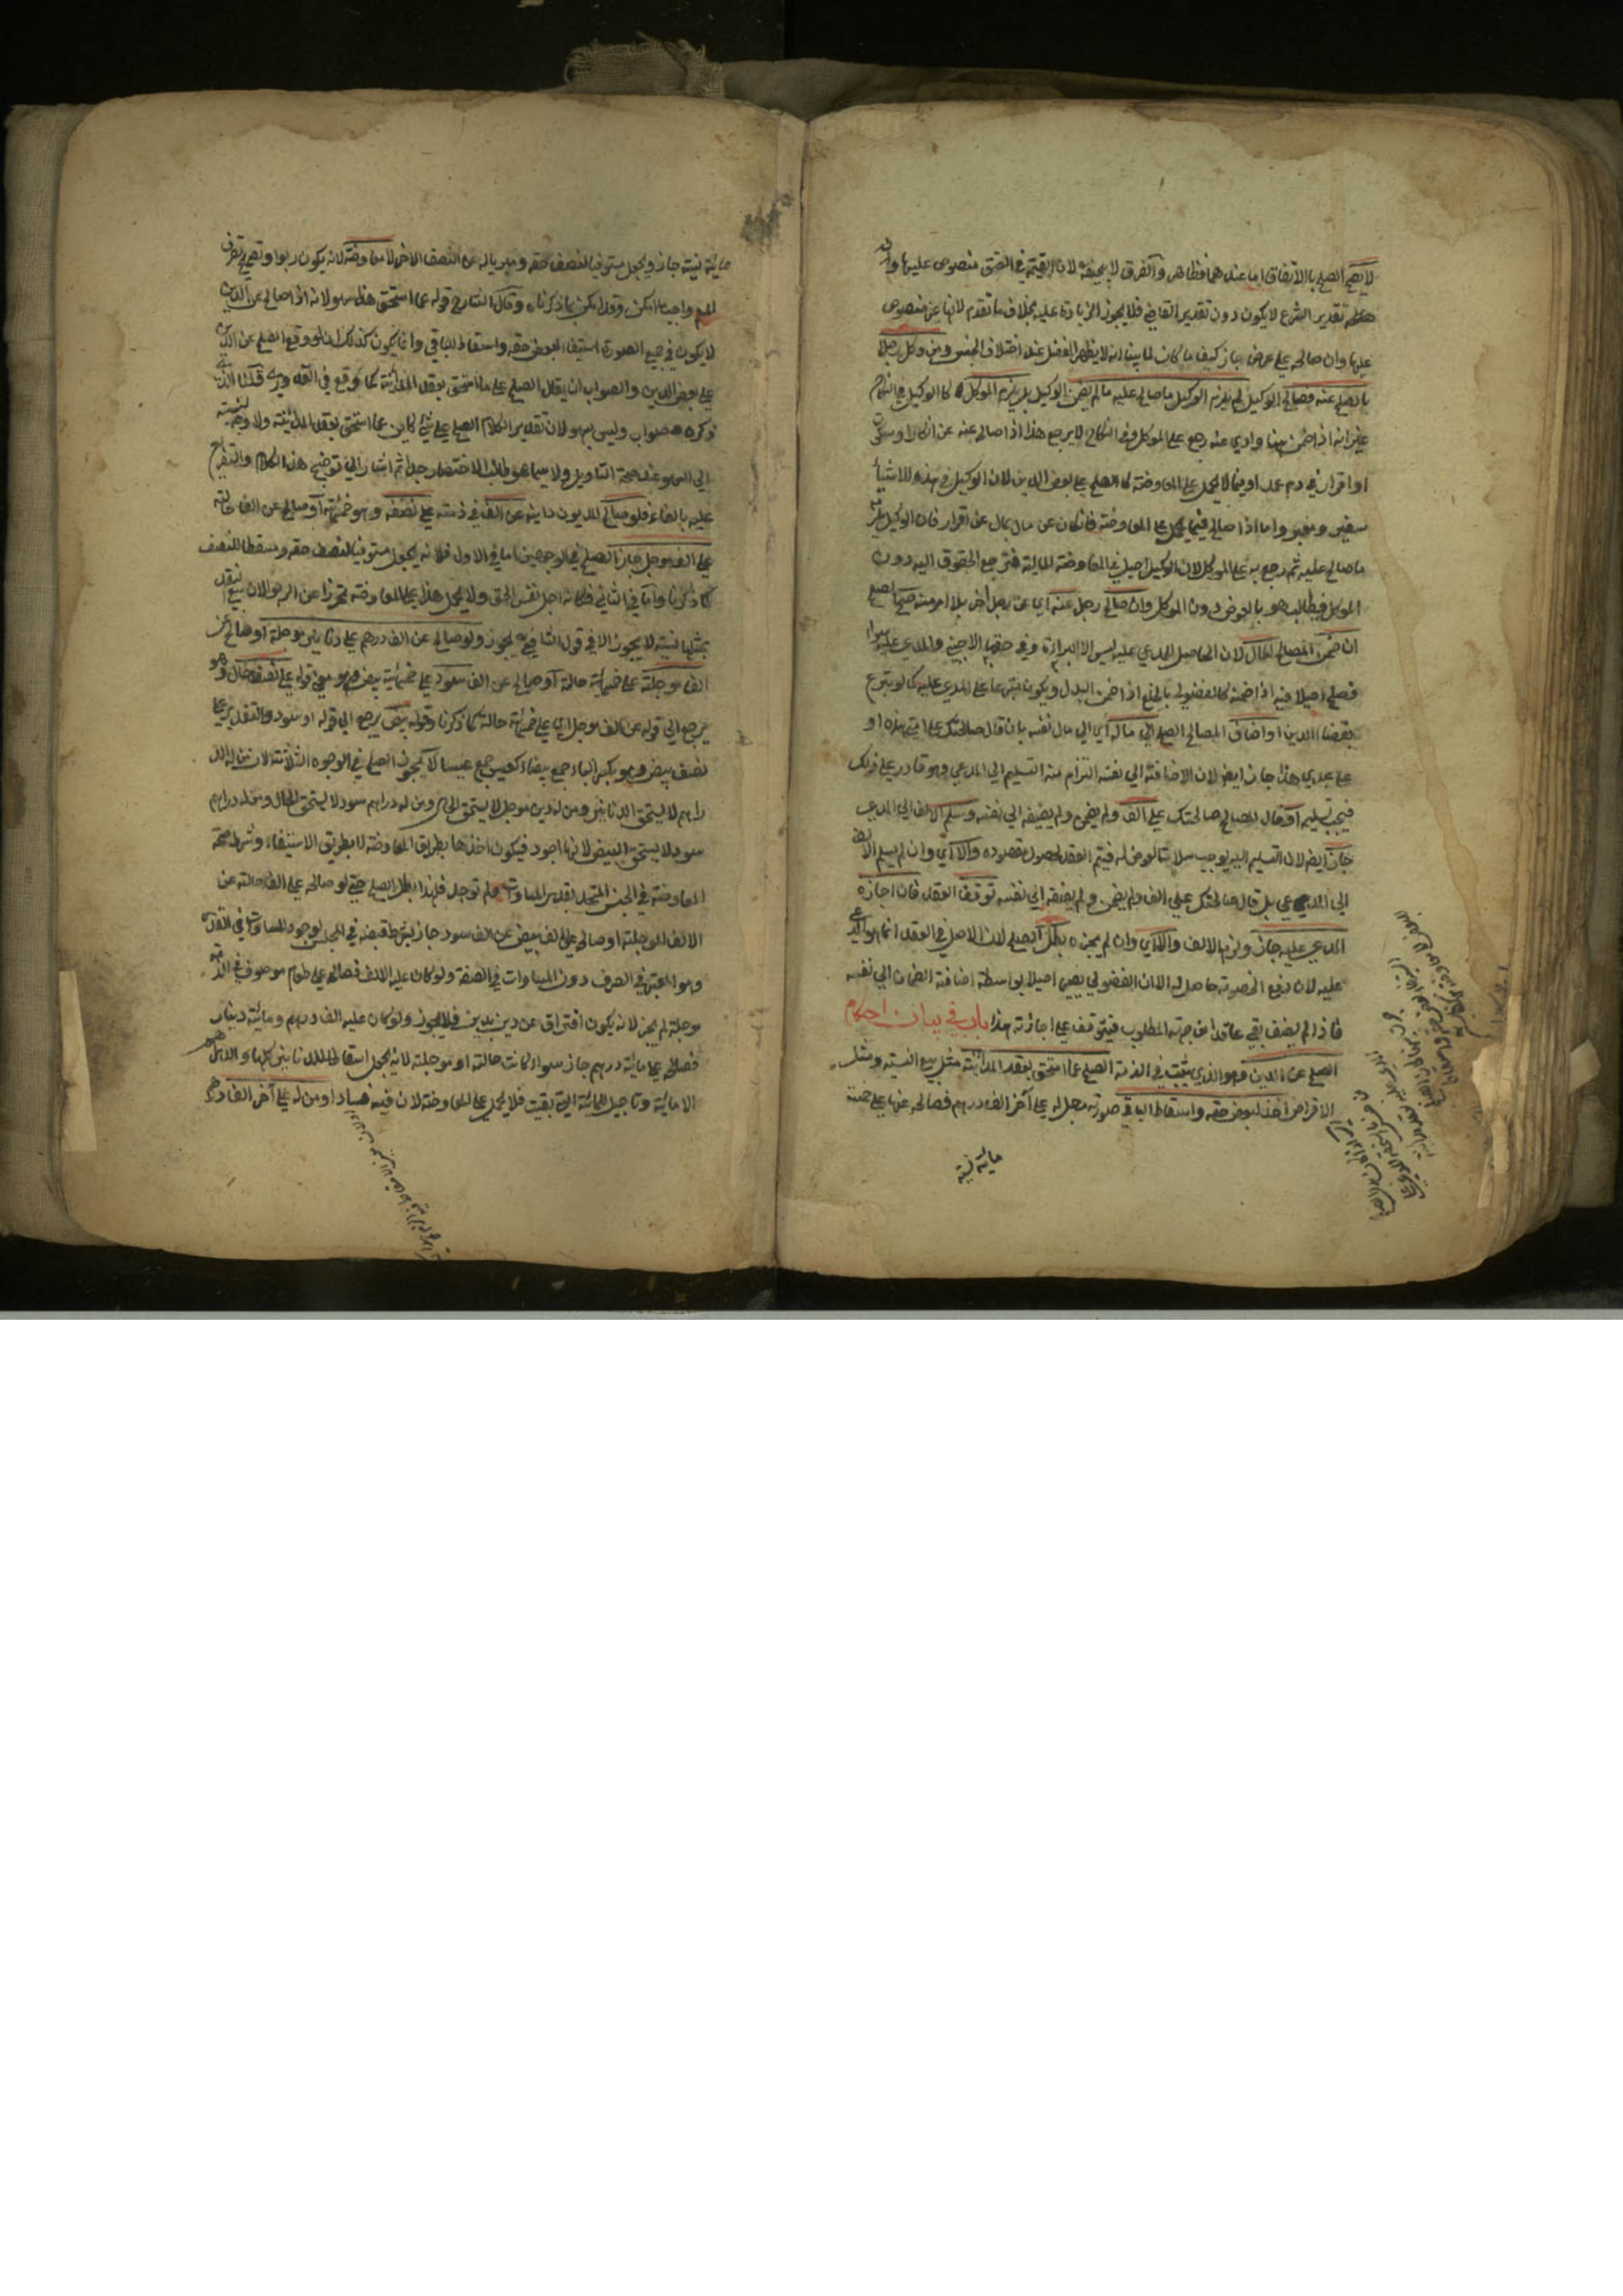 لا يصح الصلح بالاتفاق اما عندهما فظاهر والفرق لابي حنيفة لان القيمة في العتق منصوص عليها وان
تقدير الشرع لا يكون دون تقدير القاضي فلا يجوز الزيادة عليه بخلاف ما تقدم لانها غير منصوص
عليها وان صالحه على عرض جاز كيف ما كان لما بينا انه لا يظهر الفضل عند اختلاف الجنس ومن وكل رجلا
بالصلح عنه فصالح الوكيل لم يلزم الوكيل ما صالح عليه ما لم يضمن الوكيل بل يلزم الموكل كالوكيل في النكاح
غير انه اذا ضمن هنا وادي عنه رجع على الموكل وفي النكاح لا يرجع هذا اذا صالح عنه عن انكار او سكوت
او اقرار في دم عمد او فيما لا يحمل على المعاوضة كالصلح على بعض الدين لان الوكيل في هذه الاشياء
سفير ومعبر واما اذا صالح فيما يحمل على المعاوضة فان كان عن مال بمال عن اقرار فان الوكيل يلزمه
ما صالح عليه ثم رجع به على الموكل لان الوكيل اصيل في المعاوضة المالية فترجع الحقوق اليه دون
الموكل فيطالب هو بالعوض دون الموكل وان صالح رجل عنه اي عن رجل اخر بلا امر منه صح الصلح
ان ضمن المصالح المال لان الحاصل للمدعي عليه ليس الا البراءة وفي حقها الاجنبي والمدعي عليه سواء
فصلح اصيلا فيه اذا ضمنه كالفضولي بالخلع اذا ضمن البدل ويكون متبرعا على المدعي عليه كما لو تبرع
بقضاء الدين او اضاف المصالح الصلح الي ماله اي الي مال نفسه بان قال صالحتك على الفي هذه او
على عبدي هذا جاز ايضا لان الاضافة الي نفسه التزام منه التسليم الي المدعي وهو قادر على ذلك
فيجب تسليمه او قال المصالح صالحتك على الف ولم يضمن ولم يضيفه الي نفسه وسلم الالف الي المدعي
جاز ايضا لان التسليم اليه يوجب سلامة العوض له فيتم العقد لحصول مقصوده والا اي وان لم يسلم الالف
الي المدعي بل قال صالحتك على الف ولم يضمن ولم يضفه الي نفسه توقف العقد فان اجازه
المدعي عليه جاز ولزمه الالف والا اي وان لم يجزه بطل الصلح لان الاصل في العقد انما هو المدعي
عليه لان دفع الخصومة حاصل له الا ان الفضولي يصير اصيلا بواسطة اضافة الضمان الي نفسه
فاذا لم يضف بقي عاقدا من جهة المطلوب فيتوقف على اجازته هذا باب في بيان احكام
الصلح عن الدين وهو الذي يثبت في الذمة الصلح عما استحق بعقد المداينة مثل بيع النسية ومثل
الاقراض اخذ لبعض حقه واسقاط للباقي صورته رجل له على آخر الف درهم فصالحه عنها على خمس
ماية نسية
ماية نسية جاز ويجعل مستوفيا لنصف حقه ومبرئا له عن النصف الاخر لا معاوضة لانه يكون ربوا وتصحيح تصرف
المسلم واجب ما امكن وقد امكن بما ذكرناه وقال الشارح قوله عما استحق هذا سهو لانه اذا صالح عن الدين
لا يكون في جميع الصورة استيفاء لبعض حقه واسقاط للباقي وانما يكون كذلك ان لو وقع الصلح عن الدين
على بعض الدين والصواب ان يقال الصلح على ما استحق بعقد المداينة كما وقع في القدوري قلنا الذي
ذكره صواب وليس بسهو لان تقدير الكلام الصلح على شئ كاين عما استحق بعقد المداينة ولا وجه لنسبته
الي السهو عند صحة التاويل ولا سيما هو طالب الاختصار جدا ثم اشار الي توضيح هذا الكلام والتفريع
عليه بالفاء فلو صالح المديون داينه عن الف في ذمته على نصفه وهو خمسماية او صالح عن الف حالة
على الف موجل جاز الصلح في الوجهين اما في الاول فلانه يجعل مستوفيا لنصف حقه ومسقطا للنصف
كما ذكرنا واما في الثاني فكانه اجل نفس الحق ولا يحمل هذا على المعاوضة تحرزا عن الربوا لان بيع النقد
بمثلها نسية لا يجوز الا في قول الشافعي يجوز ولو صالح عن الف درهم على دنانير موجلة او صالح عن
الف موجلة على خمسماية حالة او صالح عن الف سود على خمسماية بيض وهو معنى قوله على نصف حال وهو
يرجع الي قوله عن الف موجل اي على خمسماية حالة كما ذكرنا وقوله بيض يرجع الي قوله او سود والتقدير على
نصف بيض وهو بكسر الباء جمع بيضاء كعيس جمع عيساء لا يجوز الصلح في الوجوه الثلاثة لان من له الد
راهم لا يستحق الدنانير ومن له دين موجل لا يستحق الحال ومن له دراهم
سود لا يستحق البيض لانها اجود فيكون اخذها بطريق المعاوضة لا بطريق الاستيفاء وشرط صحة
المعاوضة في الجنس المتحد بقدر المساوات ولم توجد فلهذا بطل الصلح حتى لو صالحه على الف حالة عن
الالف الموجلة او صالح على الف بيض عن الف سود جاز بشرط قبضه في المجلس لوجود المساوات في القدر
وهو المعتبر في الصرف دون المساوات في الصفة ولو كان عليه الالف فصالح على طعام موصوف في الذمة
موجلة لم يجز لانه يكون افتراق عن دين بدين فلا يجوز ولو كان عليه الف درهم وماية دينار
فصالح على ماية درهم جاز سواء كانت حالة او موجلة لانه يجعل اسقاطا للدنانير كلها والدراهم
الا ماية وتاجيل للماية التي بقيت فلا يحمل على المعاوضة لان فيه فسادا ومن له على آخر الف درهم